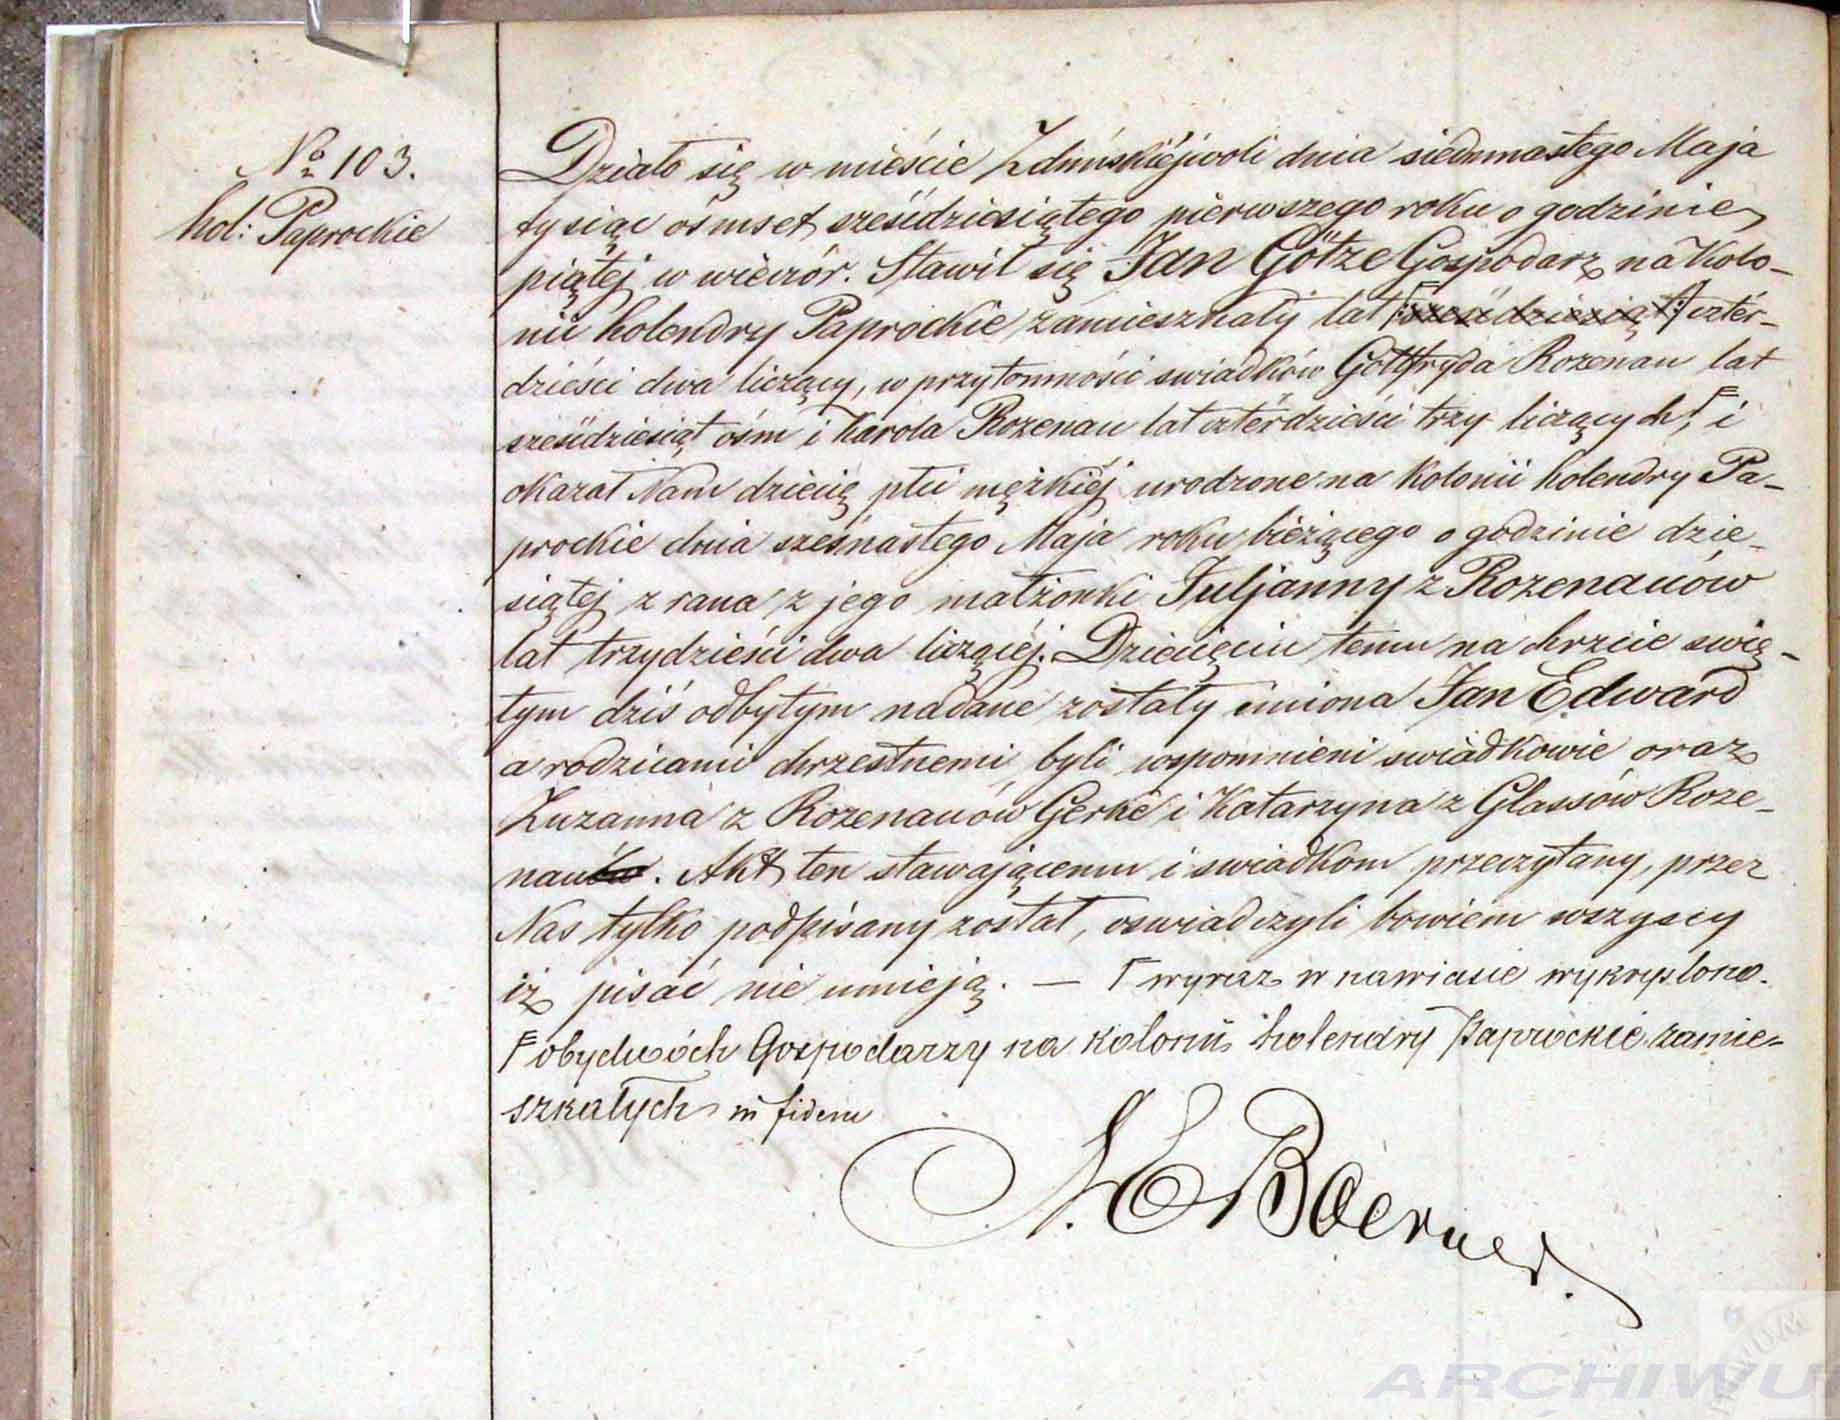 № 103.
hol: Paprockie
Działo się w mieście Zduńskiéjwoli dnia siedmnastego Maja
tysiąc ośmset sześćdziesiątego pierwszego roku o godzinie
piątej w wieczór. Stawił się Jan Götze Gospodarz na Kolo-
nii holendry Paprockie zamieszkały lat ⌈: sześćdziesiąt :⌉ czter-
dzieści dwa liczący, w przytomności swiadków Gottfryda Rozenau lat
sześćdziesiąt ośm i Karola Rozenau lat czterdzieści trzy liczących, ⌈ i
okazał Nam dziecię płci męzkiéj urodzone na Kolonii holendry Pa-
prockie dnia szesnastego Maja roku bieżącego o godzinie dzie-
siątej z rana z jego małżonki Juljanny z Rozenauów
lat trzydzieści dwa liczącéj. Dziecięciu temu na chrzcie swię-
tym dziś odbytym nadane zostały imiona Jan Edward
a rodzicami chrzestnemi byli wspomnieni swiadkowie oraz
Zuzanna z Rozenauów Gerke i Katarzyna z Glassów Roze-
nau. Akt ten stawającemu i swiadkom przeczytany, przez
Nas tylko podpisany został, oswiadczyli bowiem wszyscy
iż pisać nie umieją. — ⌈ wyraz w nawiasie wykryslono.
⌈ obydwóch Gospodarzy na kolonii holendry Paprockie zamie-
szkałych in fidem
Boerner.
ARCHIWU